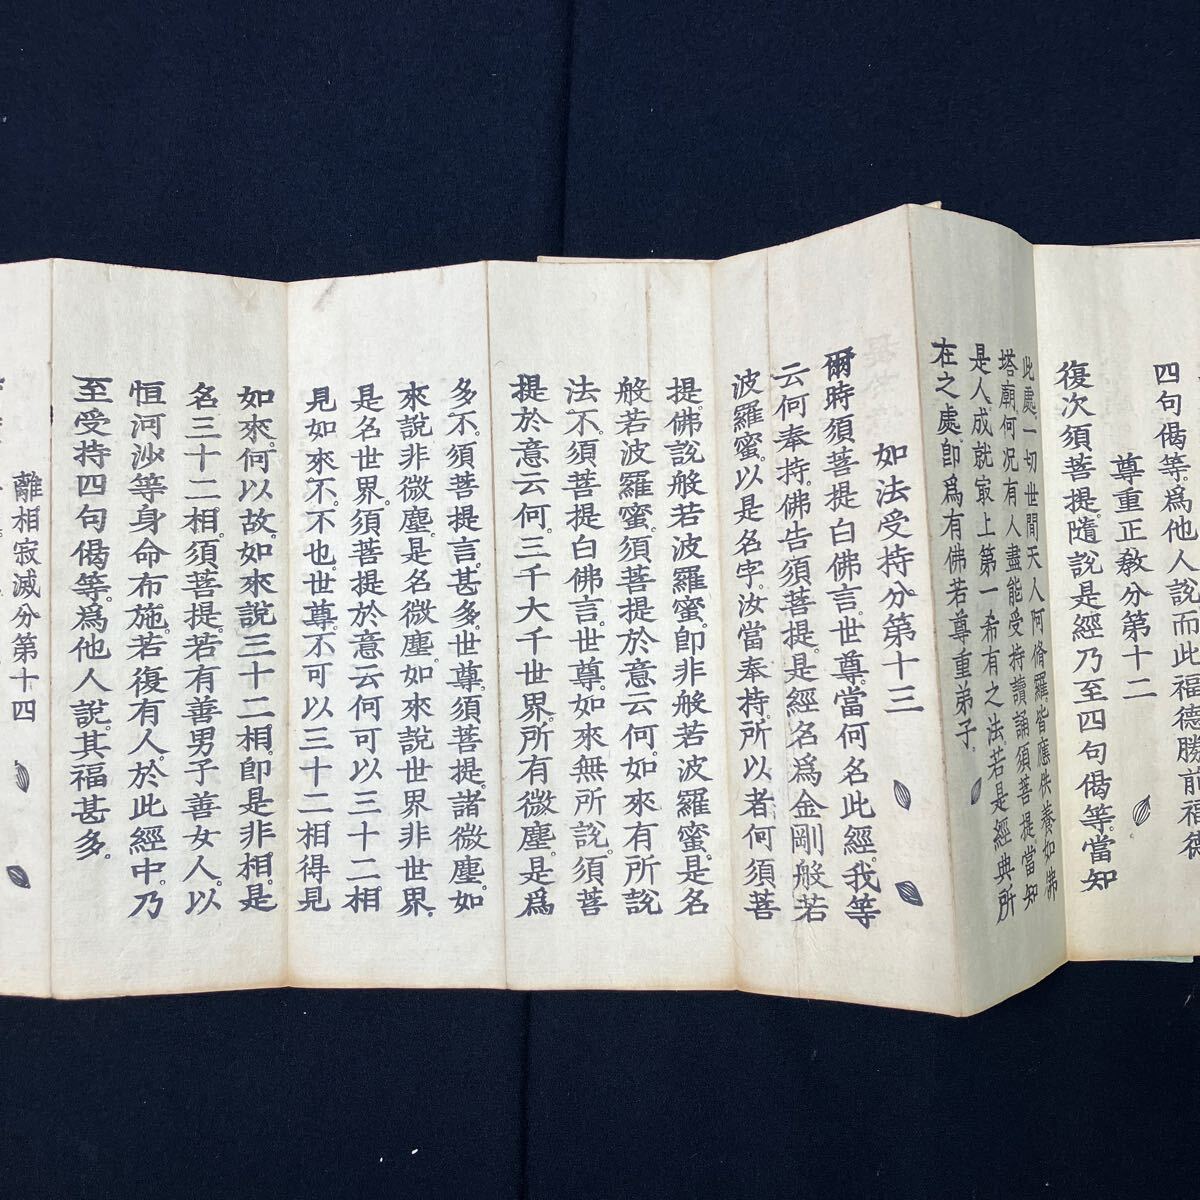 四句偈等。爲他人說而此福德勝前福德
尊重正敎分第十二
復次須菩提。隨說是經乃至四句偈等。當知
此處。一切世間天人阿脩羅。皆應供養如佛
塔廟。何况有人盡能受持讀誦須菩提當知
是人。成就㝡上第一希有之法若是經典所
在之處。卽爲有佛若尊重弟子。
如法受持分第十三
爾時須菩提白佛言。世尊。當何名此經。我等
云何奉持。佛告須菩提。是經名爲金剛般若
波羅蜜。以是名字。汝當奉持。所以者何須菩
提。佛說般若波羅蜜。卽非般若波羅蜜。是名
般若波羅蜜。須菩提於意云何。如來有所說
法不。須菩提白佛言。世尊。如來無所說。須菩
提於意云何。三千大千世界。所有微塵。是爲
多不。須菩提言。甚多。世尊。須菩提。諸微塵。如
來說非微塵。是名微塵。如來說世界非世界。
是名世界。須菩提於意云何可以三十二相
見如來不。不也。世尊。不可以三十二相。得見
如來。何以故。如來說三十二相。卽是非相。是
名三十二相。須菩提。若有善男子善女人。以
恒河沙等身命布施。若復有人。於此經中。乃
至受持四句偈等。爲他人說。其福甚多。
離相寂滅分第十四